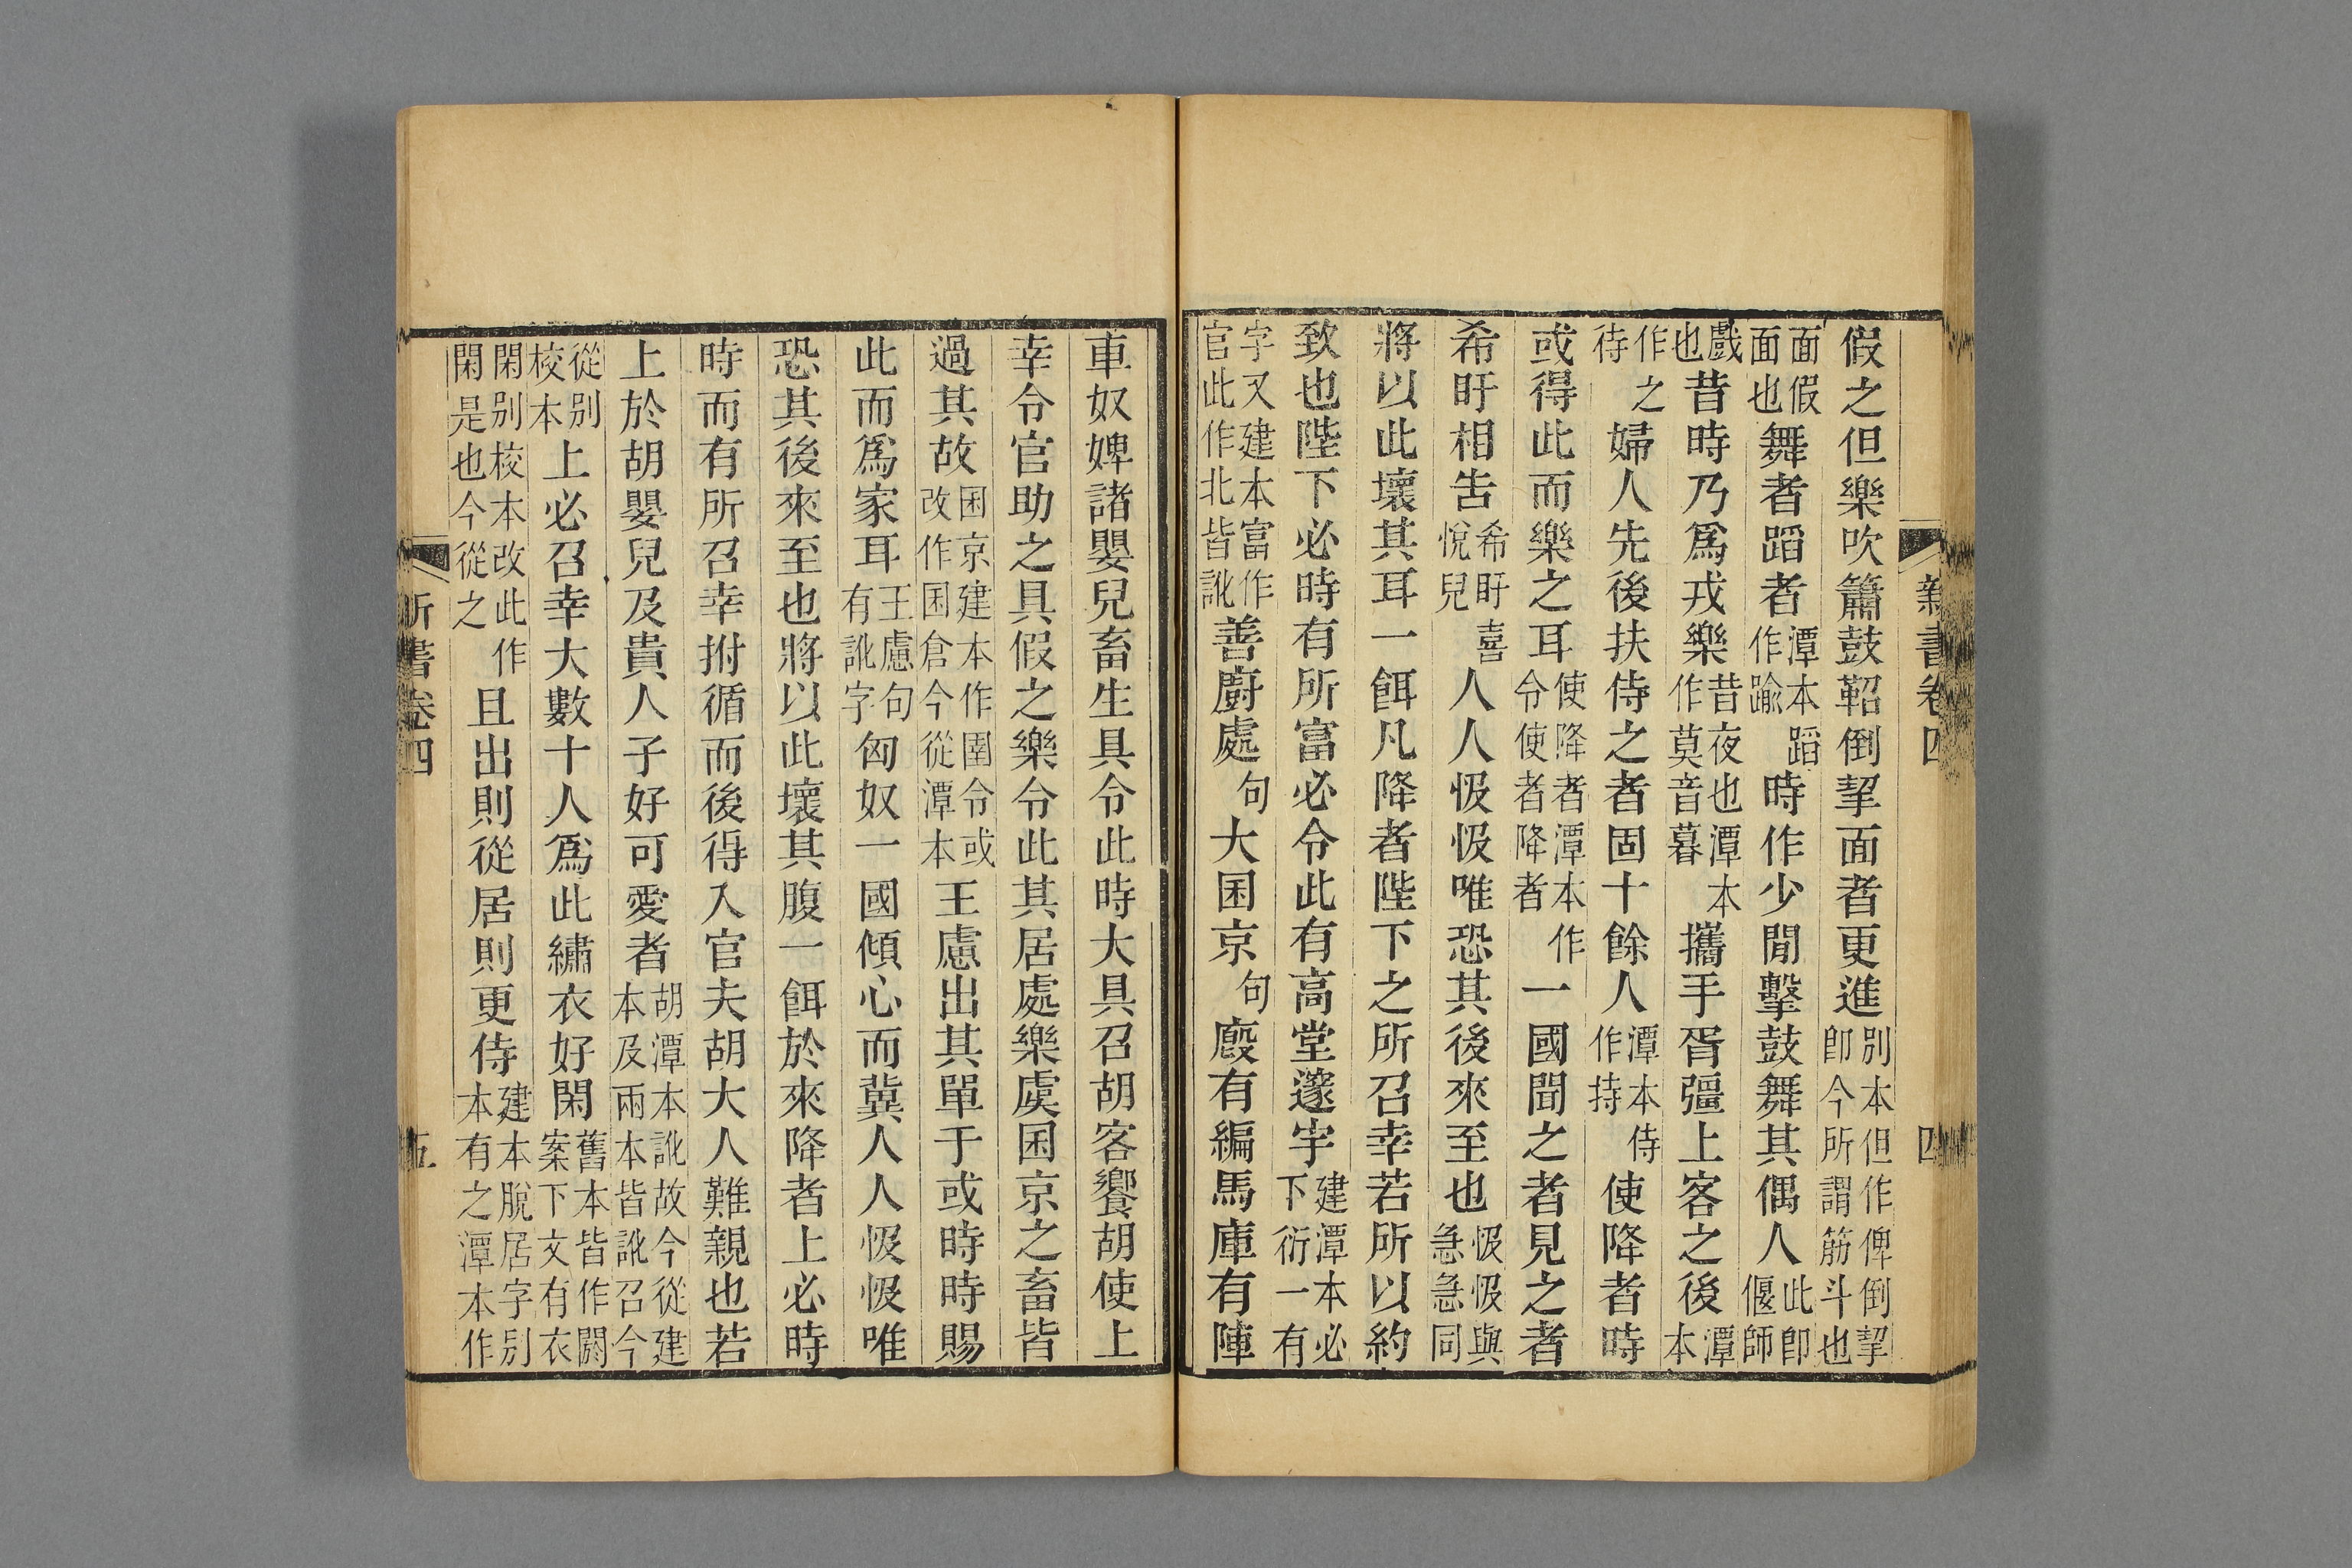 新書卷四 四
假之但樂吹簫鼓鞀倒挈面者更進別本但作俾倒挈卽今所謂筋斗也
面假面也舞者蹈者潭本蹈作踰時作少閒擊鼓舞其偶人此卽偃師
戲也昔時乃爲戎樂昔夜也潭本作莫音暮攜手胥彊上客之後潭本
作之待婦人先後扶侍之者固十餘人潭本侍作持使降者時
或得此而樂之耳使降者潭本作令使者降者一國聞之者見之者
希盱相告希盱喜悅皃人人忣忣唯恐其後來至也忣忣與急急同
將以此壞其耳一餌凡降者陛下之所召幸若所以約
致也陛下必時有所富必令此有高堂邃宇建潭本必下衍一有
字又建本富作官此作北皆訛善廚處句大囷京句廄有編馬庫有陣
車奴婢諸嬰兒畜生具令此時大具召胡客饗胡使上
幸令官助之具假之樂令此其居處樂虞囷京之畜皆
過其故囷京建本作圍令或改作囷倉今從潭本王慮出其單于或時時賜
此而爲家耳王慮句有訛字匈奴一國傾心而冀人人忣忣唯
恐其後來至也將以此壞其腹一餌於來降者上必時
時而有所召幸拊循而後得入官夫胡大人難親也若
上於胡嬰兒及貴人子好可愛者胡潭本訛故今從建本及兩本皆訛召今
從別校本上必召幸大數十人爲此繡衣好閑舊本皆作閼案下文有衣
閑別校本改此作閑是也今從之且出則從居則更侍建本脫居字別本有之潭本作
新書卷四 五